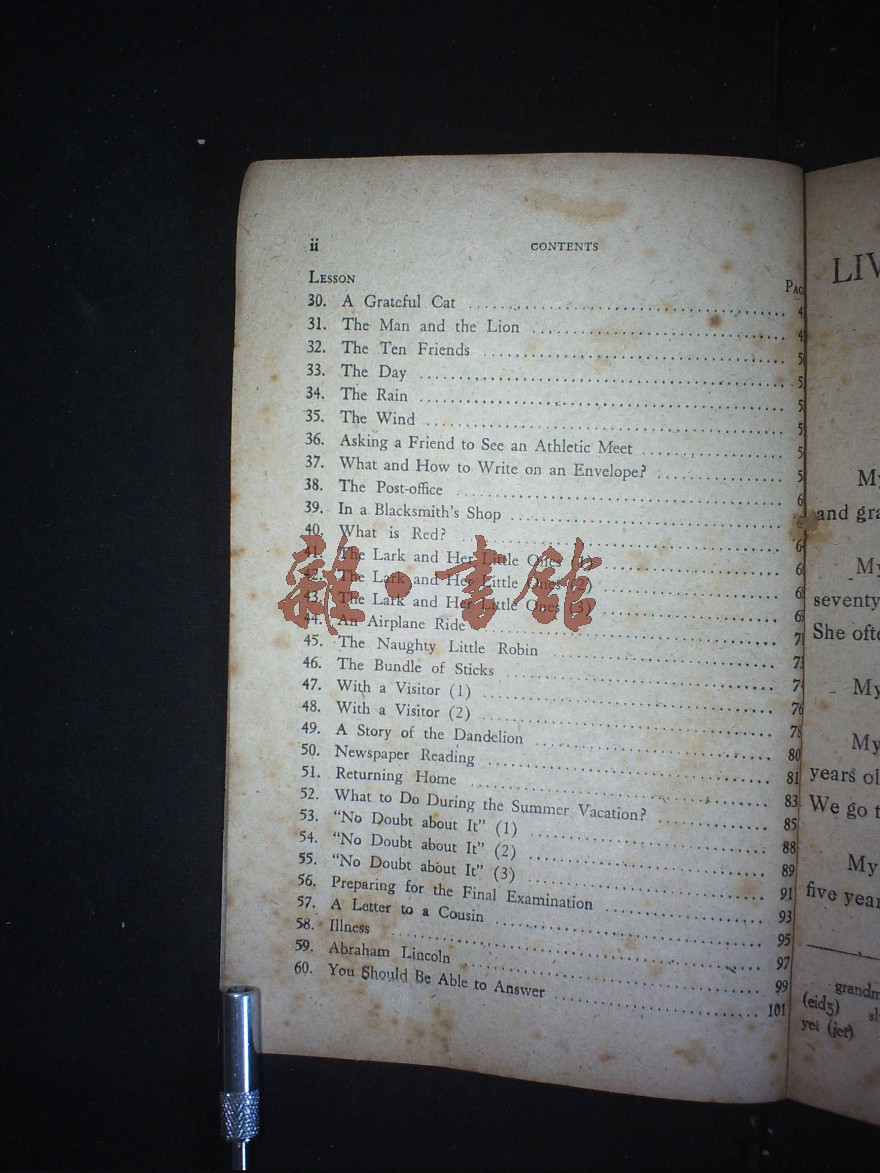 ii CONTENTS
LESSON PAG
30. A Grateful Cat 4
31. The Man and the Lion 4
32. The Ten Friends 5
33. The Day 5
34. The Rain 5
35. The Wind 5
36. Asking a Friend to See an Athletic Meet 5
37. What and How to Write on an Envelope? 5
38. The Post-office 6
39. In a Blacksmith's Shop
40. What is Red? 6
41. The Lark and Her Little Ones (1) 6
42. The Lark and Her Little Ones (2) 6
43. The Lark and Her Little Ones (3) 6
44. An Airplane Ride 7
45. The Naughty Little Robin 73
46. The Bundle of Sticks 74
47. With a Visitor (1) 76
48. With a Visitor (2) 78
49. A Story of the Dandelion 80
50. Newspaper Reading 81
51. Returning Home 83
52. What to Do During the Summer Vacation? 85
53. "No Doubt about It" (1) 88
54. "No Doubt about It" (2) 89
55. "No Doubt about It" (3) 91
56. Preparing for the Final Examination 93
57. A Letter to a Cousin 95
58. Illness 97
59. Abraham Lincoln 99
60. You Should Be Able to Answer 101
雜·書館
LIV
My
and gra
My
seventy
She ofte
My
My
years ol
We go t
My
five year
grandm
(eidʒ) sh
yet (jet)